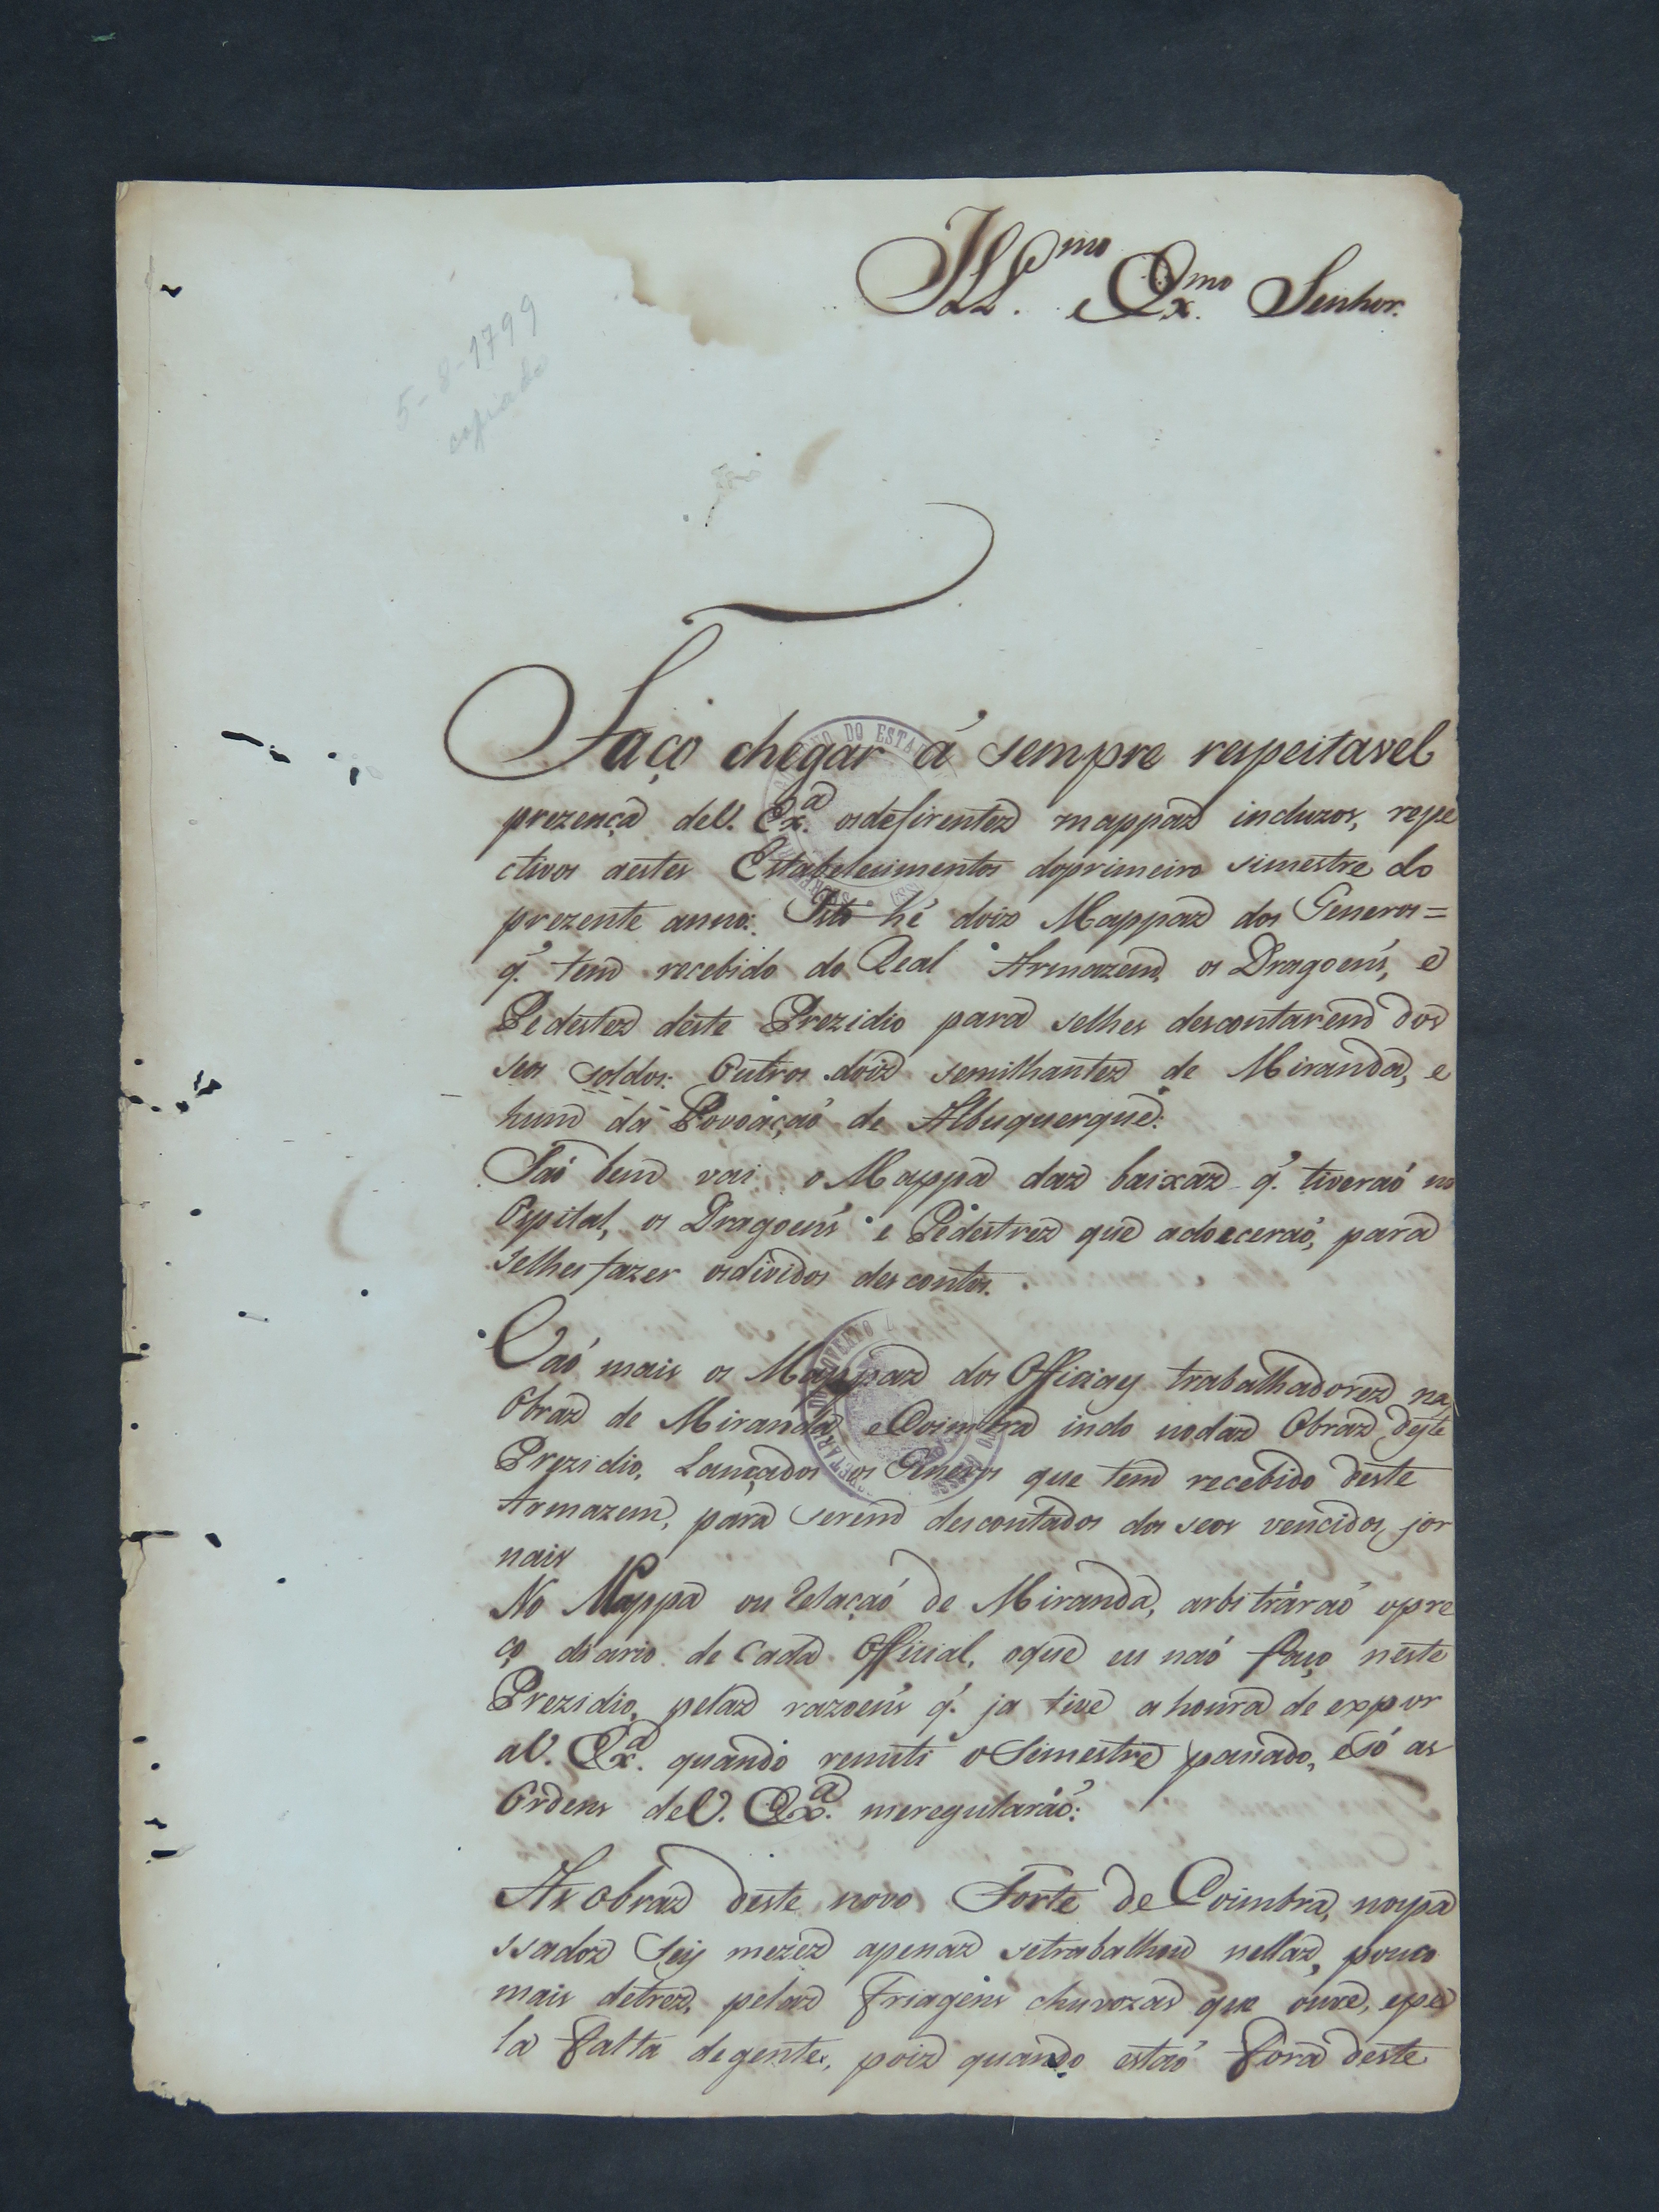 Ill.mo e Ex.mo Senhor.
5-8-1799
copiado
Faço chegar á sempre respeitavel
prezença deV. Ex.a osdefirentes mappas incluzos, respe
ctivos aestes Estabelecimentos doprimeiro simestre do
prezente anno: Isto hé dois Mappas dos Generos=
q.' tem recebido do Real Armazem, os Dragoens, e
Pedestes deste Prezidio para selhes descontarem dos
seos soldos: Outros dois semilhantes de Miranda, e
hum da Povoaçaõ de Albuquerque:
Taõ bem vai o Mappa das baixas q.' tiveraõ no
Ospital, os Dragoens e Pédestres que adoeceraõ, para
selhes fazer osdividos descontos.
Vaõ mais os Mappas dos Officiays trabalhadores nas
Obras de Miranda, eCoimbra indo nodas Obras deste
Prezidio, Lançados os Generos que tem recebido deste
Armazem, para serem descontados dos seos vencidos jor
nais
No Mappa ou Relaçaõ de Miranda, arbitráraõ opre
ço diario de Cada Official, oque eu naõ faço neste
Prezidio, pelas razoens q.' ja tive a honra de expor
aV. Ex.a quando remiti oSimestre passado, esó as
Ordens deV. Ex.a meregularáõ:
As obras deste novo Forte de Coimbra, nospa
ssados Seis mezes apenas setrabalhou nellas, pouco
mais detres, pelas friagens chuvozas que ouve, epe
la falta degente, pois quando estaõ fora deste